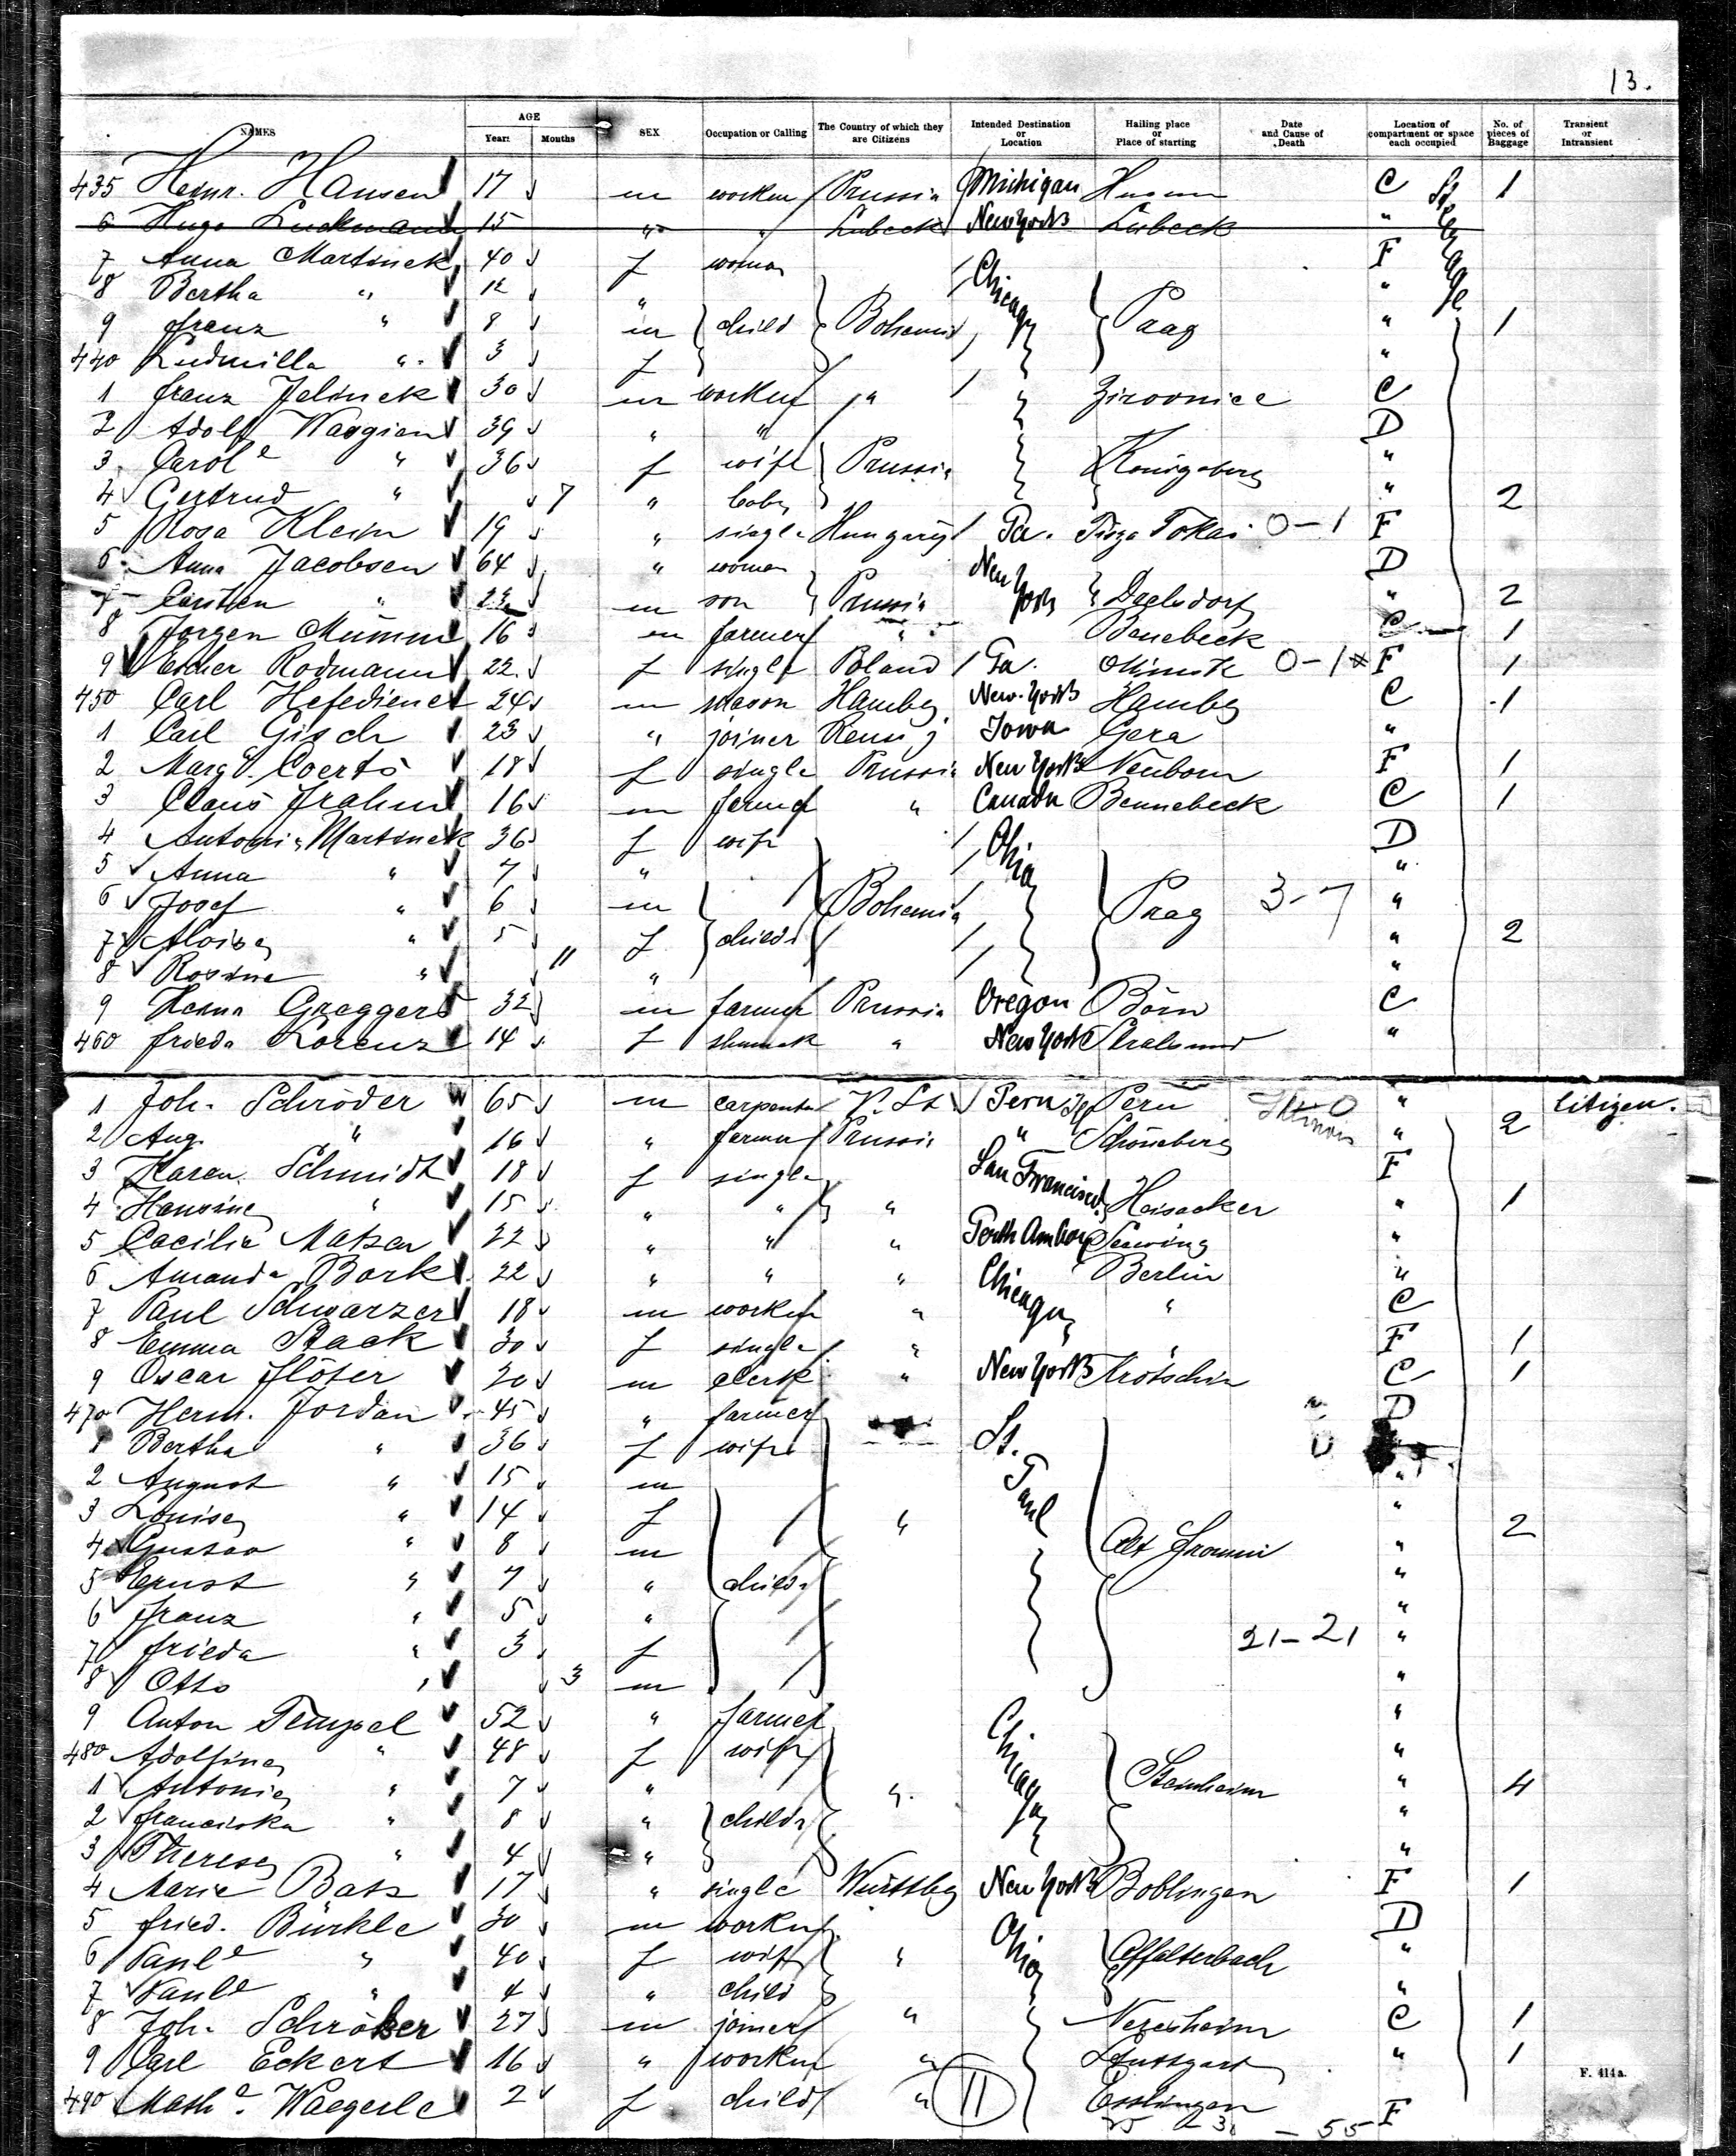 13.
NAMES AGE Years Months SEX Occupation or Calling The Country of which they are Citizens Intended Destination or Location Hailing place or Place of starting Date and Cause of Death Location of compartment or space each occupied No. of pieces of Baggage Transient or Intransient
435 Heinr. Hansen 17 m worker Prussia Michigan Husum C 1
6 Hugo Luckmann 15 " " Lubeck New York Lübeck "
7 Anna Martinek 40 f woman Chicago F
8 Bertha " 12 " "
9 Franz " 8 m child Bohemia Prag " 1
440 Ludmilla " 3 f "
1 Franz Jelinek 30 m worker " " Zirovnice C
2 Adolf 39 " " D
3 Carole " 36 f wife Prussia Königsberg "
4 Gertrud " 7 " baby " 2
5 Rosa Klein 19 " single Hungary Pa. Tisza Tokai 0-1 F
6 Anna Jacobsen 64 " woman New York D
7 Carsten " 23 m son Prussia Daelsdorf " 2
8 Jörgen Mumm 16 m farmer " Benebeck C 1
9 Esther Rodmann 22 f single Poland Pa. Minsk 0-1 F 1
450 Carl Hefediener 24 m mason Hambg New-York Hambg C 1
1 Carl Gisch 23 " joiner Reuss j Iowa Gera "
2 Marg. Coerts 18 f single Prussia New York F 1
3 Claus Frahm 16 m farmer " Canada Bennebeck C 1
4 Antonia Martinek 36 f wife Chicag D
5 Anna " 7 " "
6 Josef " 6 m Bohemia Prag 3-7 "
7 Aloise " 5 f childr " 2
8 Rosine " 11 " "
9 Henn Greggers 32 m farmer Prussia Oregon Börn C
460 Frieda Lorenz 14 f " New York Stralsund "
1 Joh. Schröder 65 m carpenter V. St Peru Ill Peru Illinois " 2 Citizen.
2 Aug. " 16 " farmer Prussia " Schöneberg "
3 Karen Schmidt 18 f single San Francisco F
4 Hansine " 15 " " " Hoisacker " 1
5 Cacilie Matzen 22 " " " Perth Amboy "
6 Amanda Bork 22 " " " Chicago Berlin "
7 Paul Schwarzer 18 m worker " " C
8 Emma Stack 30 f single " " F 1
9 Oscar Flöter 20 m clerk " New York Krotschin C 1
470 Herm. Jordan 45 " farmer St. Paul D
1 Bertha " 36 f wife
2 August " 15 m "
3 Louise " 14 f " " 2
4 Gustav " 8 m Alt "
5 Ernst " 7 " childr "
6 Franz " 5 " "
7 Frieda " 3 f 21-21 "
8 Otto " 3 m "
9 Anton Tempel 52 " farmer Chicago "
480 Adolfine " 48 f wife "
1 Antonie " 7 " " Stenheim " 4
2 Franciska " 8 " childr "
3 Therese " 4 " "
4 Marie Batz 17 " single Württbg New York Boblingen F 1
5 Fried. Bürkle 30 m worker Chicag D
6 Paule " 40 f wife " Affalterbach "
7 Paule " 4 " child "
8 Joh. Schröker 27 m joiner " Neresheim C 1
9 Carl Eckert 16 " worker " Stuttgart " 1
490 Mathe. Waegerle 2 f child " 11 Esslingen F
55
F. 414a.